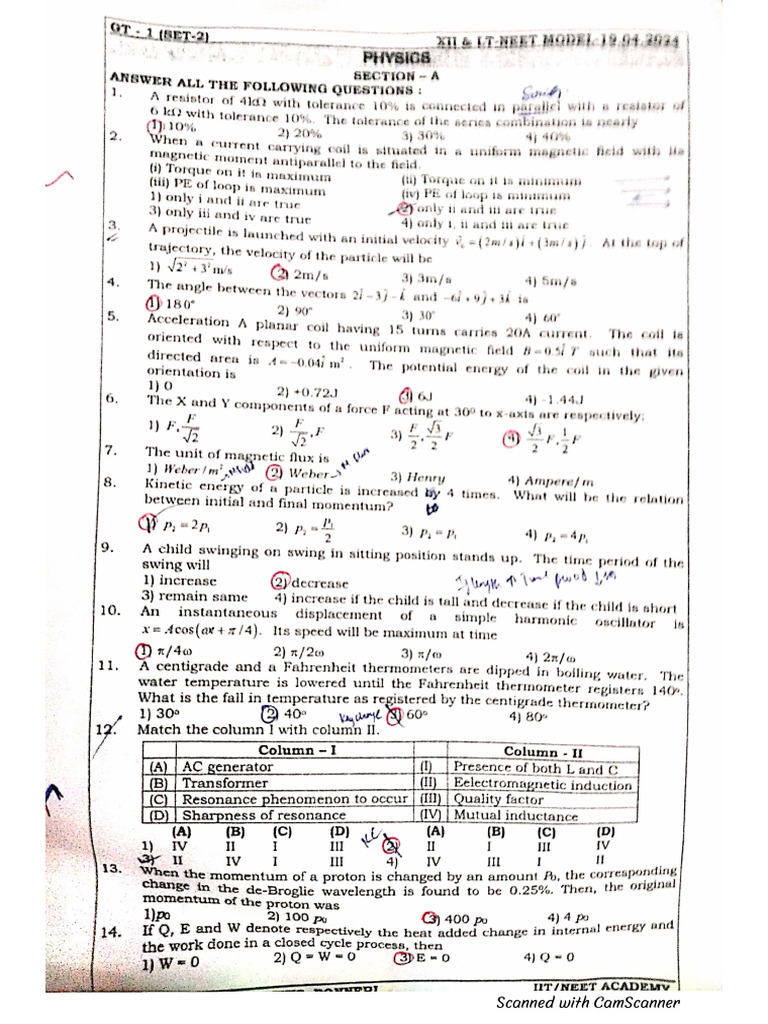 GT - 1 (SET-2) XII & LT-NEET MODEL-19.04.2024
PHYSICS
SECTION – A
ANSWER ALL THE FOLLOWING QUESTIONS :
1. A resistor of 4kΩ with tolerance 10% is connected in parallel with a resistor of
6 kΩ with tolerance 10%. The tolerance of the series combination is nearly
1) 10% 2) 20% 3) 30% 4) 40%
2. When a current carrying coil is situated in a uniform magnetic field with its
magnetic moment antiparallel to the field.
(i) Torque on it is maximum (ii) Torque on it is minimum
(iii) PE of loop is maximum (iv) PE of loop is minimum
1) only i and ii are true 2) only ii and iii are true
3) only iii and iv are true 4) only i, ii and iii are true
3. A projectile is launched with an initial velocity v⃗₀ = (2m/s)î + (3m/s)ĵ. At the top of
trajectory, the velocity of the particle will be
1) √(2² + 3²) m/s 2) 2m/s 3) 3m/s 4) 5m/s
4. The angle between the vectors 2î – 3ĵ – k̂ and –6î + 9ĵ + 3k̂ is
1) 180° 2) 90° 3) 30° 4) 60°
5. Acceleration A planar coil having 15 turns carries 20A current. The coil is
oriented with respect to the uniform magnetic field B = 0.5î T such that its
directed area is A = –0.04î m². The potential energy of the coil in the given
orientation is
1) 0 2) +0.72J 3) 6J 4) -1.44J
6. The X and Y components of a force F acting at 30° to x-axis are respectively:
1) F, F/√2 2) F/√2, F 3) F/2, √3/2 F 4) √3/2 F, 1/2 F
7. The unit of magnetic flux is
1) Weber / m² 2) Weber 3) Henry 4) Ampere/m
8. Kinetic energy of a particle is increased by 4 times. What will be the relation
to
between initial and final momentum?
1) p₂ = 2p₁ 2) p₂ = p₁/2 3) p₂ = p₁ 4) p₂ = 4p₁
9. A child swinging on swing in sitting position stands up. The time period of the
swing will
1) increase 2) decrease
3) remain same 4) increase if the child is tall and decrease if the child is short
10. An instantaneous displacement of a simple harmonic oscillator is
x = A cos(ωx + π/4). Its speed will be maximum at time
1) π/4ω 2) π/2ω 3) π/ω 4) 2π/ω
11. A centigrade and a Fahrenheit thermometers are dipped in boiling water. The
water temperature is lowered until the Fahrenheit thermometer registers 140°.
What is the fall in temperature as registered by the centigrade thermometer?
1) 30° 2) 40° Key change 3) 60° 4) 80°
12. Match the column I with column II.
Column – I Column - II
(A) AC generator (I) Presence of both L and C
(B) Transformer (II) Eelectromagnetic induction
(C) Resonance phenomenon to occur (III) Quality factor
(D) Sharpness of resonance (IV) Mutual inductance
(A) (B) (C) (D) (A) (B) (C) (D)
1) IV II I III 2) II I III IV
3) II IV I III 4) IV III I II
13. When the momentum of a proton is changed by an amount P₀, the corresponding
change in the de-Broglie wavelength is found to be 0.25%. Then, the original
momentum of the proton was
1) p₀ 2) 100 p₀ 3) 400 p₀ 4) 4 p₀
14. If Q, E and W denote respectively the heat added change in internal energy and
the work done in a closed cycle process, then
1) W = 0 2) Q = W = 0 3) E = 0 4) Q = 0
IIT/NEET ACADEMY
Scanned with CamScanner